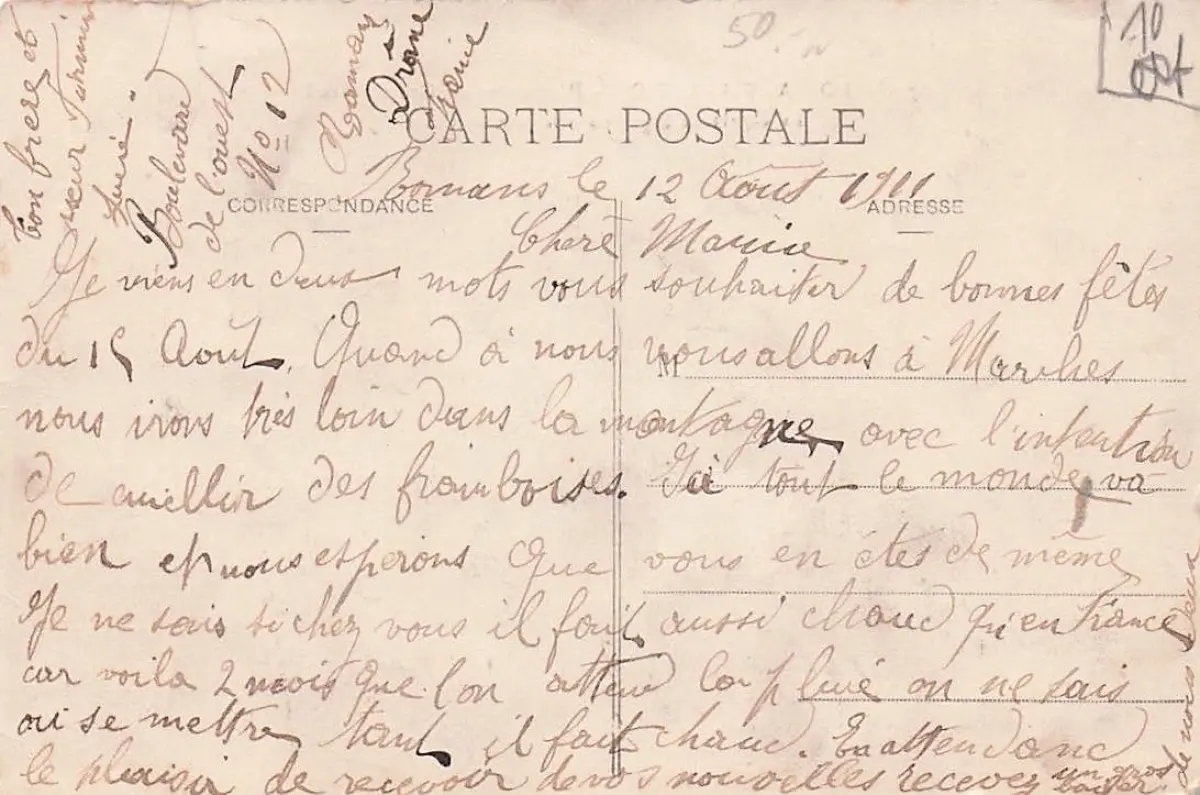 50
10
CARTE POSTALE
CORRESPONDANCE
ADRESSE
Romans le 12 Août 1911
Chere Marie
Je viens en deux mots vous souhaiter de bonnes fêtes
du 15 Août. Quand à nous nous allons à Marches
nous irons très loin dans la montagne, avec l'intention
de cuellir des framboises. Ici tout le monde va
bien et nous esperons que vous en étes de même
Je ne sais si chez vous il fait aussi chaud qu'en France
car voila 2 mois que l'on attend la pluie on ne sais
ou se mettre tant il fait chaud. En attendant
le plaisir de recevoir de vos nouvelles recevez un gros
baiser
de nous deux
ton frere et
sœur
Boulevard
de l'ouest
No 12
Romans
Drôme
M